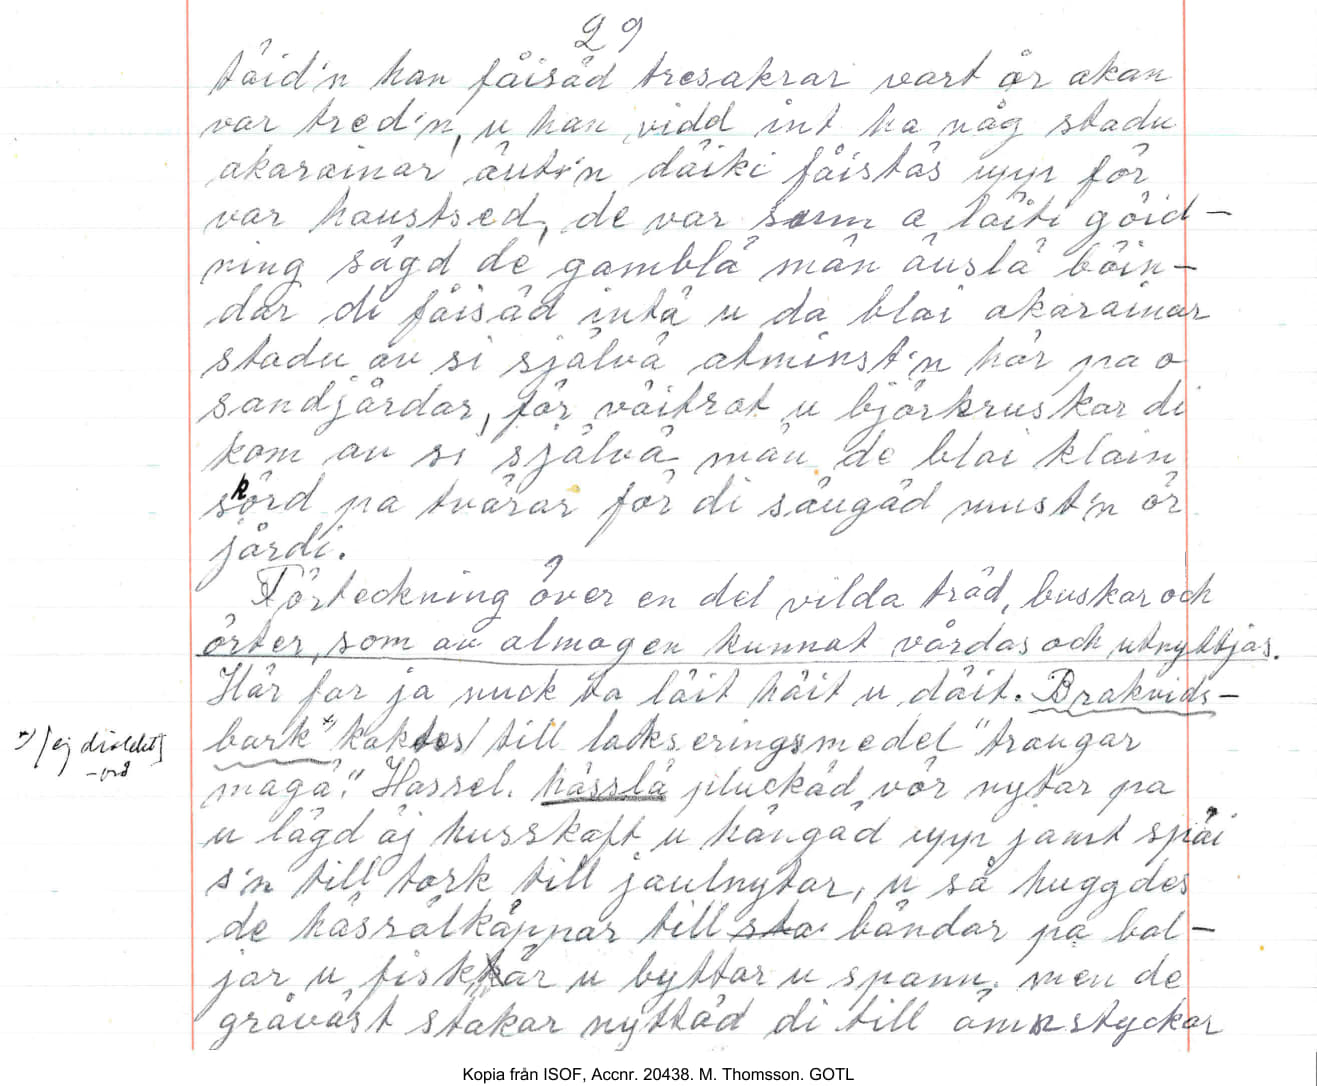 29
tåid'n han fåisåd tresakrar vart år akan
var tred'n, u han vidd int ha någ stadu
akarainar äut'n däiki fåistäs upp för
var haustsed, de var sum a läiti göid-
ning sägd de gamblä män äuslä böin-
där di fåisäd intä u da blai akarainar
stadu av si självä atminst'n här pa o
sandjårdar, för väitrot u björkruskar di
kom av si självä män de blai klain
skörd pa tvärar för di säugäd must'n ör
jårdi.
Förteckning över en del vilda träd, buskar och
örter, som av almogen kunnat vårdas och utnyttjas.
Här far ja nuck ta läit häit u däit. Brakvids-
*) [ej dialekt]
-ord
bark* kaktes till lakseringsmedel "traugar
magä." Hassel. hässlä pluckäd vör nytar pa
u lägd äj husskaft u hängäd upp jamt späi
s'n till tork till jaulnytar, u så huggdes
de hässälkäppar till bändar pa bal-
jar u fiskkar u byttar u spann. men de
gräväst stakar nyttäd di till ämnstyckar
Kopia från ISOF, Accnr. 20438. M. Thomsson. GOTL